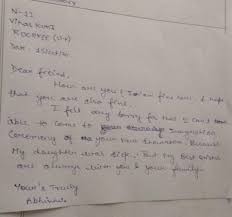 N-11
Vikas Kunj
ROORKEE (U.K)
Dear friend,
How are you I am fine here. I hope
that you are also fine.
I felt very sorry for that I can't
able to come to your inauguration
Ceremony of your new showroom. Because
My daughter was sick. But my best wishes
are always with you & your family.
Your's Truly
Abhinav